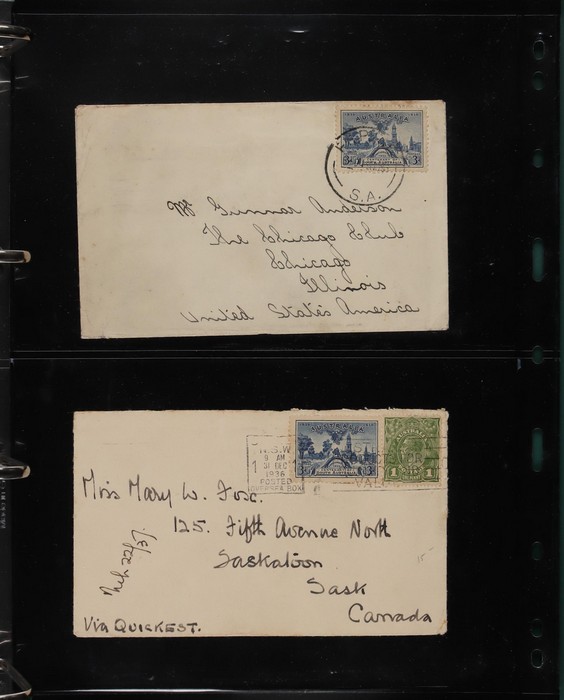 AUSTRALIA
3D 3D
S.A.
Mr Gunnar Anderson
The Chicago Club
Chicago
Illinois
United States America
AUSTRALIA
N.S.W.
9 AM
31 DEC
1936
POSTED
OVERSEA BOX
1 1
Miss Mary W. Fox.
125. Fifth Avenue North
Saskatoon
Sask
Canada
Via QUICKEST.
15-